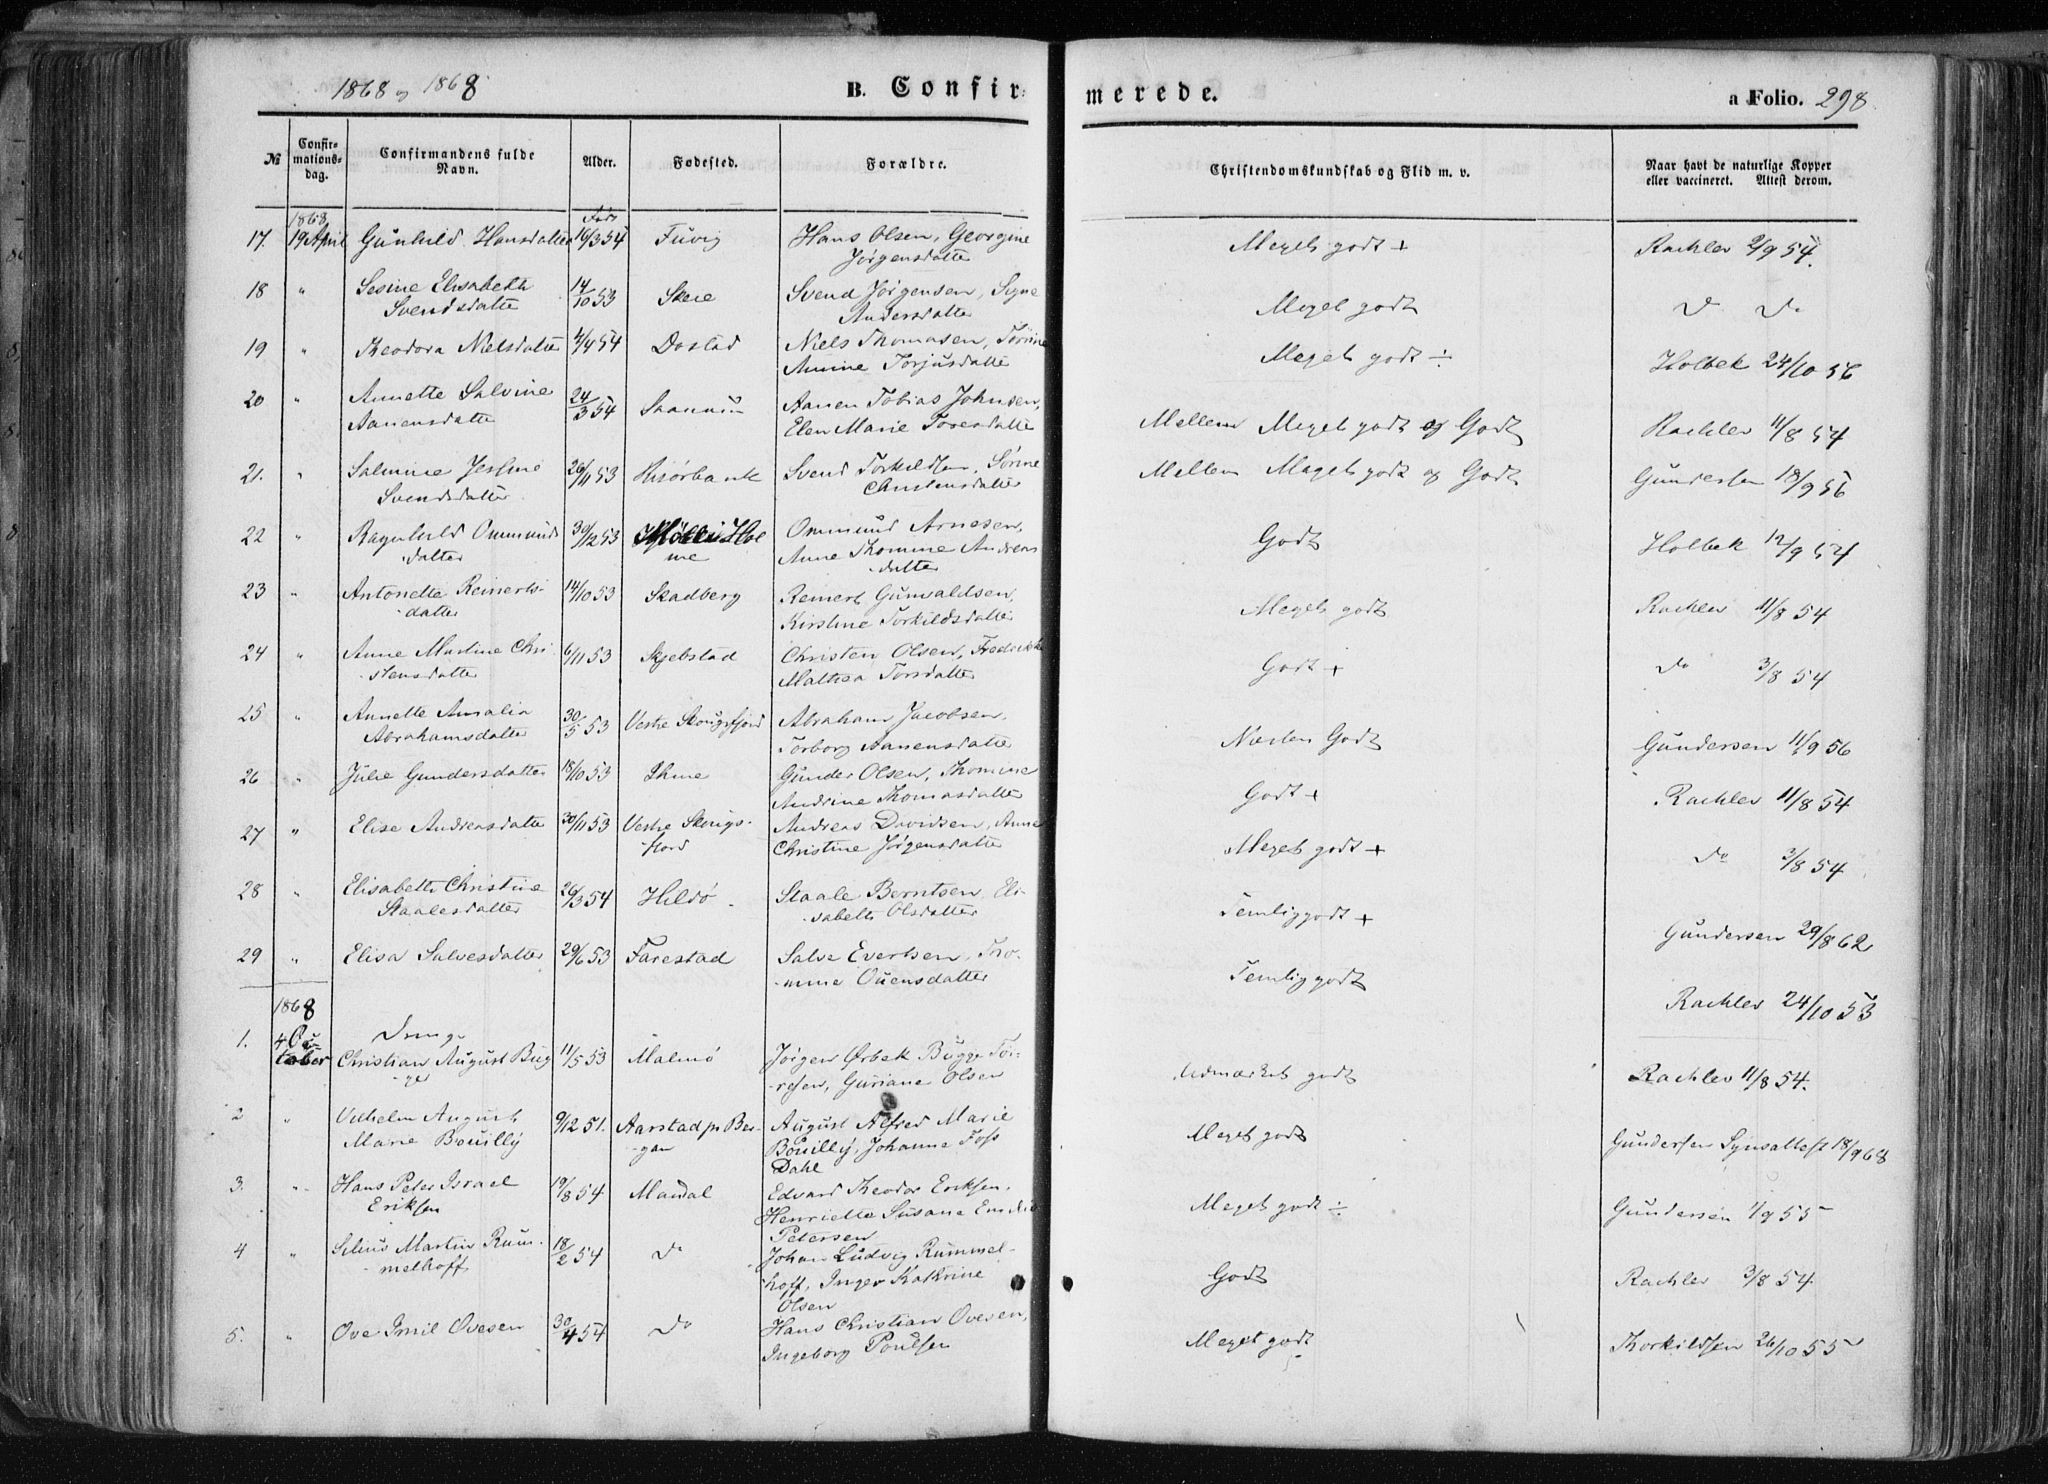 1868 og 1868
B. Confirmerede.
a Folio. 298
№ Confirmationsdag. Confirmandens fulde Navn. Alder. Fødested. Forældre. Christendomskundskab og Flid m. v. Naar havt de naturlige Kopper eller vaccineret. Attest derom.
1868 Født
17. 19 April Gunhild Hansdatter 16/3 54 Tuvig Hans Olsen, Georgine Meget godt + Rachlev 2/9 54.
Jørgensdatter
18 " Sesine Elisabeth 14/10 53 Skeie Svend Jørgensen, Signe Meget godt Do Do
Svendsdatter Andersdatter
19 " Theodora Nielsdatter 2/4 54 Dostad Niels Thomasen, Tørine Meget godt ÷ Holbek 24/10 56
Amine Torjusdatter
20 " Annette Salvine 24/3 54 Saanum Aanen Tobias Johnsen, Mellem Meget godt og Godt Rachlev 11/8 54
Aanensdatter Elen Marie Toresdatter
21. " Salmine Jesfine 26/11 53 Risørbank Svend Torkildsen, Sørine Mellem Meget godt og Godt Gundersen 18/9 56
Svendsdatter Christensdatter
22 " Ragnhild Ommunds 30/12 53 Ommund Arnesen, Godt Holbek 12/9 54
datter Anne Thomine Andreas
datter
23 " Antonette Reinerts- 14/10 53 Skadberg Reinert Gunvaldsen, Meget godt Rachlev 11/8 54
datter Kirstine Torkildsdatter
24 " Anne Martine Chri 6/11 53 Skjebstad Christen Olsen, Fredrikke Godt + Do 3/8 54
stensdatter Mathea Torsdatter
25 " Annette Amalia 30/5 53 Vestre Skougsfjord Abraham Jacobsen, Næsten Godt Gundersen 11/9 56
Abrahamsdatter Torborg Aanensdatter
26 " Julie Gundersdatter 18/10 53 Ihme Gunder Olsen, Thomine Godt + Rachlev 11/8 54
Andrine Thomasdatter
27 " Elise Andreasdatter 30/11 53 Vestre Skougs- Andreas Davidsen, Anne Meget godt + Do 3/8 54
fjord Christine Jørgensdatter
28 " Elisabeth Christine 26/3 54 Hildø Staale Berntsen, Eli Temlig godt + Gundersen 29/8 62
Staalesdatter sabeth Olsdatter
29 " Elisa Salvesdatter 29/6 53 Farestad Salve Evertsen, Tho- Temlig godt Rachlev 24/10 53
mine Ouensdatter
1868
Drenge
1. 4 Octaber Christian August Bug 11/5 53 Malmø Jørgen Ørbek Bugge Tør- Udmærket godt Rachlev 11/8 54.
ge resen, Guriane Olsen
2 " Vilhelm August 9/12 51. Aarstad pr Ber- August Alfred Marie Meget godt Gundersen Synsattest 18/9 68
Marie Bouilly gen Bouilly, Johanne Foss
Dahl
3. " Hans Peter Israel 19/8 54 Mandal Edvard Theodor Eriksen, Meget godt ÷ Gundersen 1/9 55
Eriksen Henriette Susane Emilie
Petersen
4 " Silius Martin Rum- 18/2 54 Do Johan Ludvig Rummel- Godt Rachlev 3/8 54.
melhoff hoff, Inger Katrine
Olsen
5. " Ove Imil Ovesen 30/4 54 Do Hans Christian Ovesen, Meget godt Thorkildsen 26/10 55
Ingeborg Poulsen